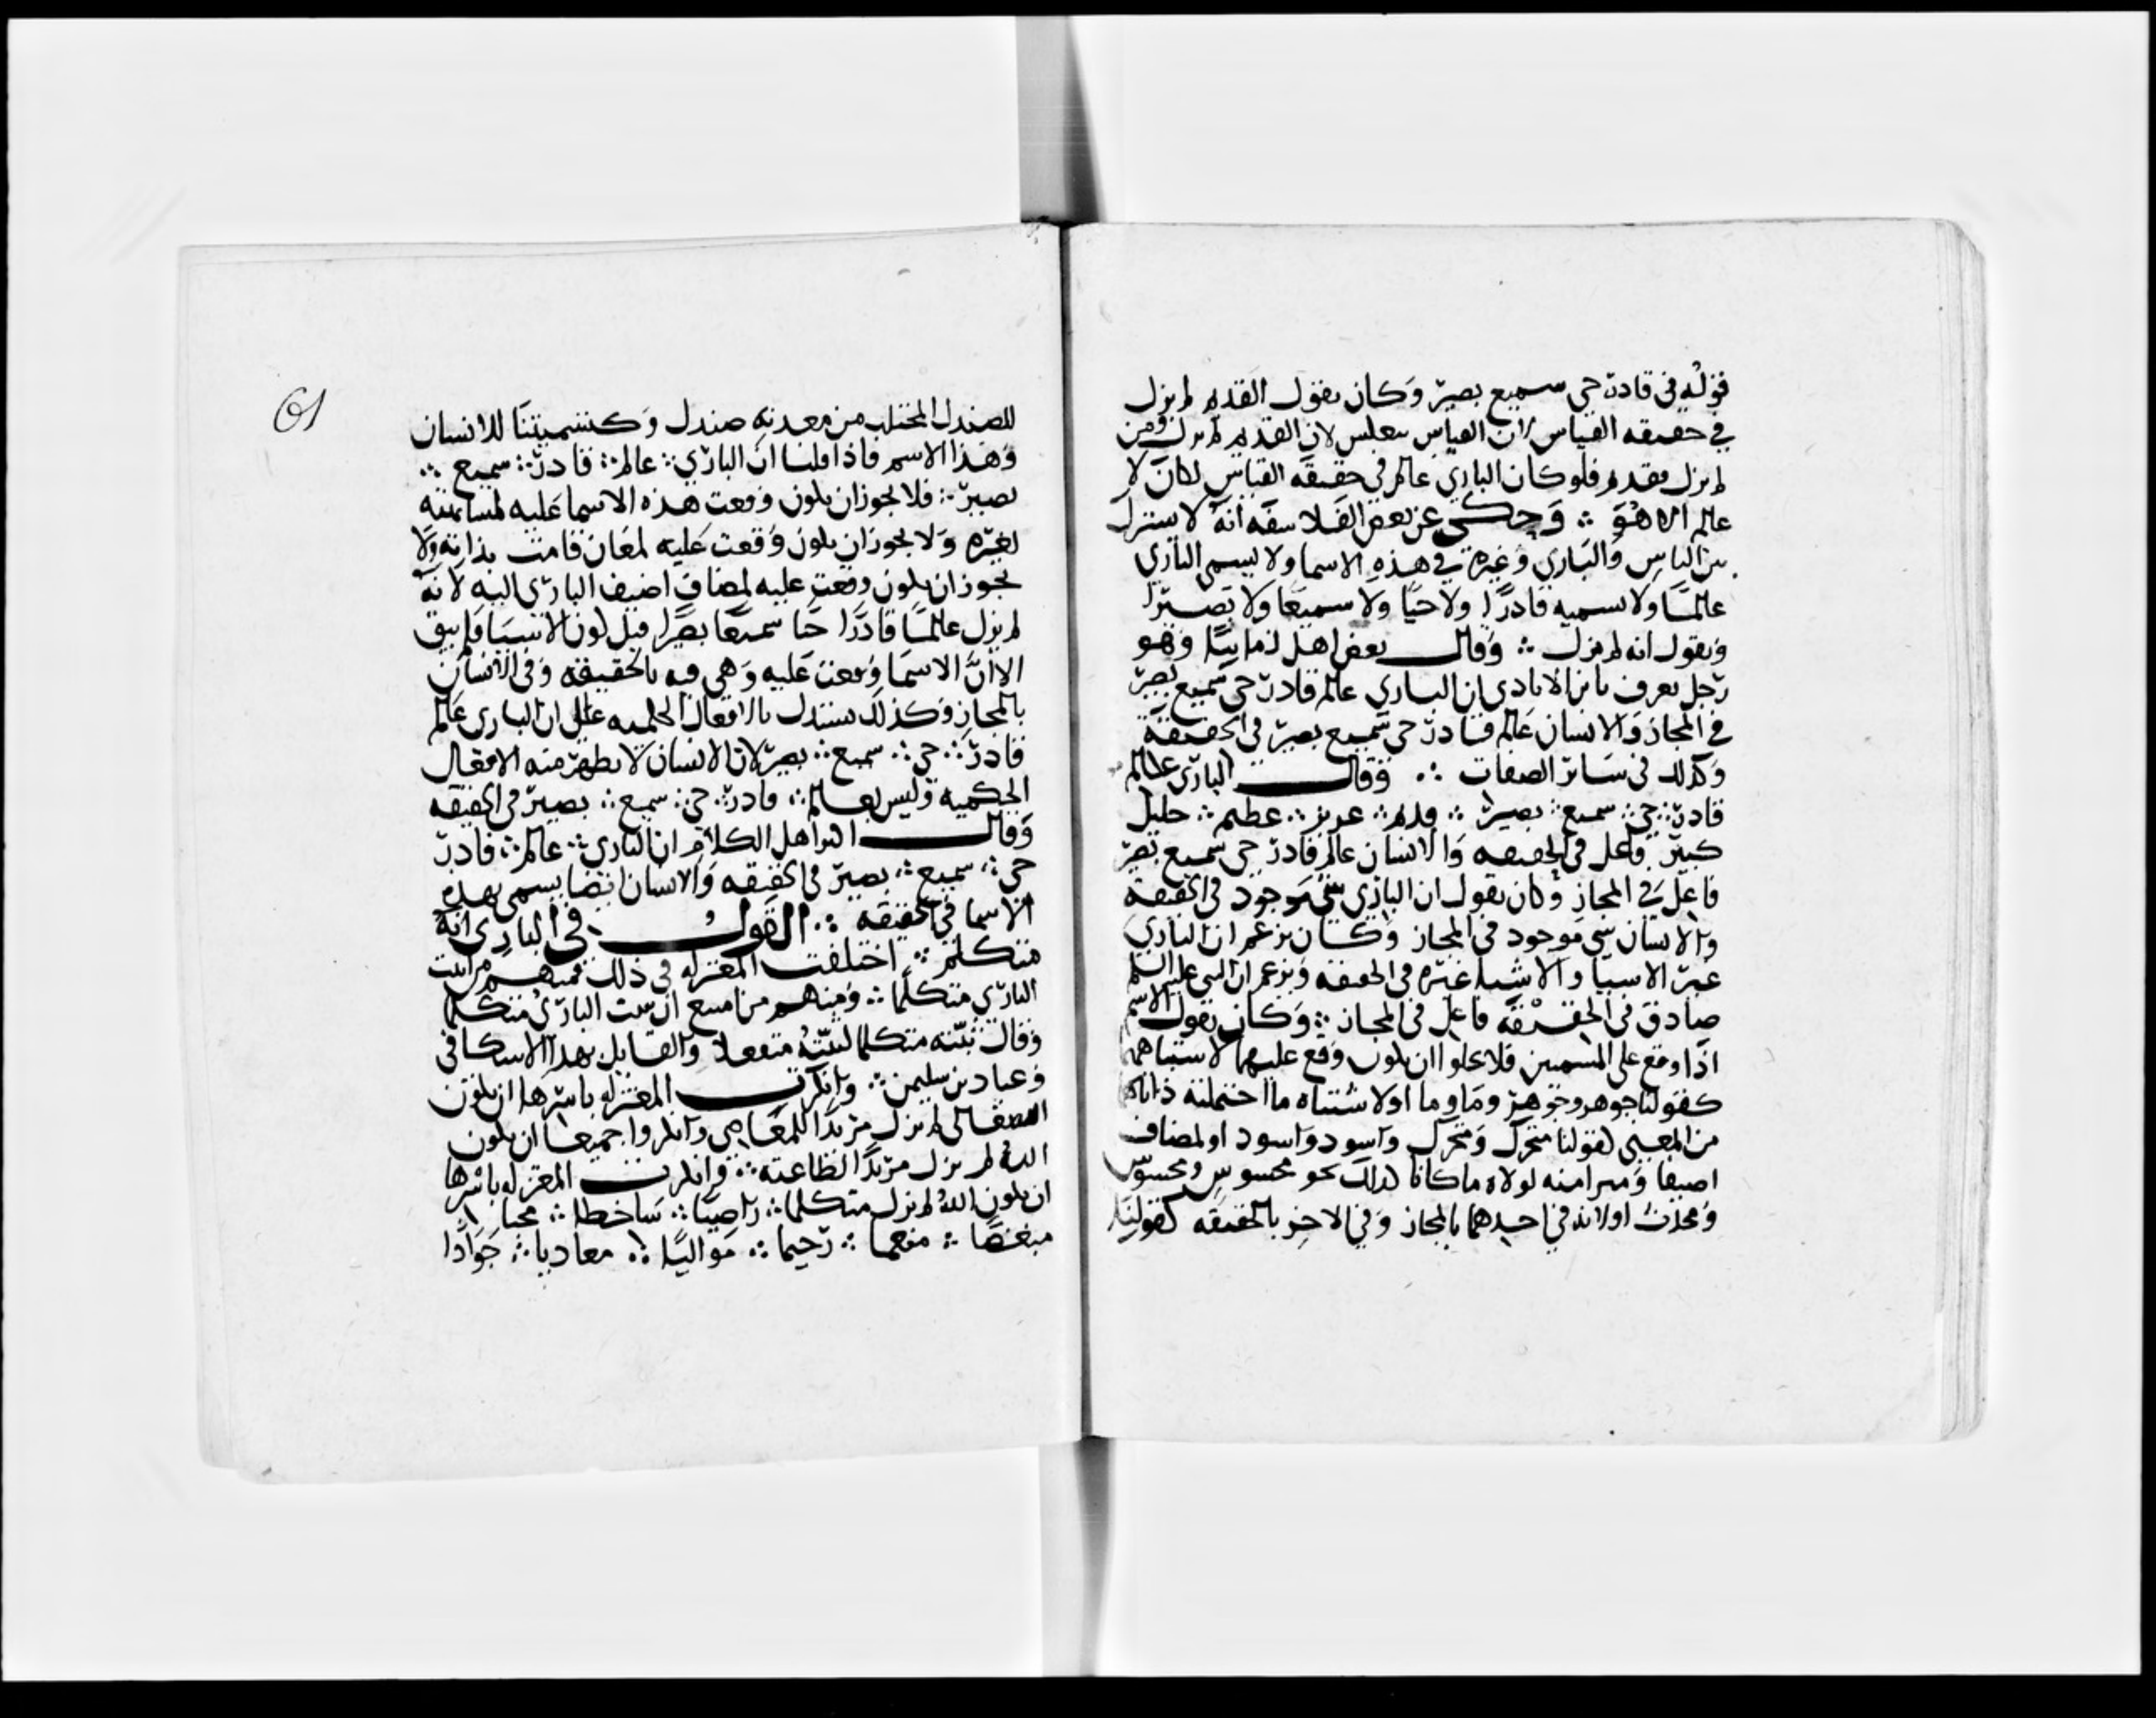 قوله في قادر حي سميع بصير وكان يقول القديم لم يزل
في حقيقه القياس لان القياس ينعكس لان القديم لم يزل ومن
لم يزل فقديم فلو كان الباري عالم في حقيقه القياس لكان لا
عالم الا هو ∴ وحكي عن بعض الفلاسفه انه لا يشترك
بين الناس والباري وغيره في هذه الاسما ولا يسمي الباري
عالما ولا يسميه قادرا ولا حيا ولا سميعا ولا بصيرا
ويقول انه لم يزل ∴ وقال بعض اهل زماننا وهو
رجل يعرف بابن الايادي ان الباري عالم قادر حي سميع بصير
في المجاز والانسان عالم قادر حي سميع بصير في الحقيقة
وكذلك في سائر الصفات ∴ وقال الباري عالم
قادر ∴ حي ∴ سميع ∴ بصير ∴ قديم ∴ عزيز ∴ عظيم ∴ جليل
كبير فاعل في الحقيقه والانسان عالم قادر حي سميع بصير
فاعل في المجاز وكان يقول ان الباري شي موجود في الحقيقه
والانسان شي موجود في المجاز وكان يزعم ان الباري
غير الاشيا والاشيا غيره في الحقيقه ويزعم ان النبي عليه السلم
صادق في الحقيقة فاعل في المجاز ∴ وكان يقول الاسم
اذا وقع على المسميين فلا يخلوا ان يكون وقع عليهما لاشتباههما
كقولنا جوهر وجوهر وما وما او لاشتباه ما احتملته ذاتاهما
من المعنى كقولنا متحرك ومتحرك واسود واسود او لمضاف
اضيفا وميزا منه لولاه ما كانا كذلك نحو محسوس ومحسوس
ومحدث او لانه في احدهما بالمجاز وفي الاخر بالحقيقه كقولنا
61
للصندل المجتلب من معدنه صندل وكتسميتنا للانسان
وهذا الاسم فاذا قلنا ان الباري ∴ عالم ∴ قادر ∴ سميع ∴
بصير ∴ فلا يجوز ان يكون وقعت هذه الاسما عليه لمشابهته
لغيره ولا يجوز ان يكون وقعت عليه لمعان قامت بذاته ولا
يجوز ان يكون وقعت عليه لمضاف اضيف الباري اليه لانه
لم يزل عالما قادرا حيا سميعا بصيرا قبل كون الاشيا فلم يبق
الا ان الاسما وقعت عليه وهي فيه بالحقيقه وفي الانسان
بالمجاز وكذلك يستدل بالافعال الحكميه على ان الباري عالم
قادر ∴ حي ∴ سميع ∴ بصير لان الانسان لا تظهر منه الافعال
الحكميه وليس بعالم ∴ قادر ∴ حي ∴ سميع ∴ بصير في الحقيقه
وقال اكثر اهل الكلام ان الباري ∴ عالم ∴ قادر
حي ∴ سميع ∴ بصير في الحقيقه والانسان ايضا يسمى بهذه
الاسما في الحقيقه ∴ القول في الباري انه
متكلم ∴ اختلفت المعتزله في ذلك فمنهم من اثبت
الباري متكلما ∴ ومنهم من امتنع ان يثبت الباري متكلما
وقال يثبته متكلما لثبته متفعلا والقايل بهذا الاسكافي
وعباد بن سليمن ∴ وانكرت المعتزله باسرها ان يكون
لم يزل مريدا للمعاصي وانكروا جميعا ان يكون
الله لم يزل مريدا لطاعته ∴ وانكرت المعتزله باسرها
ان يكون الله لم يزل متكلما ∴ راضيا ∴ ساخطا ∴ محبا
مبغضا ∴ منعما ∴ رحيما ∴ مواليا ∴ معاديا ∴ جوادا